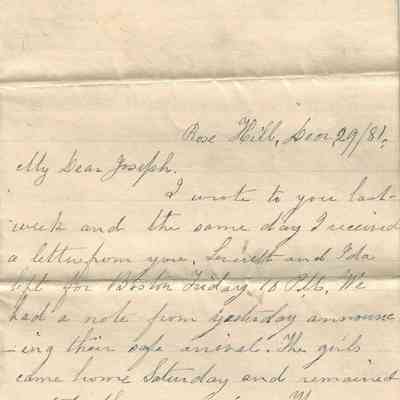 Rose Hill, Dec 29/81,
My Dear Joseph.
I wrote to you last
week and the same day I received
a letter from you. Leverett and Ida
left for Boston Friday 10 P.M. We
had a note from yesterday announc
-ing their safe arrival. The girls
came home Saturday and remained